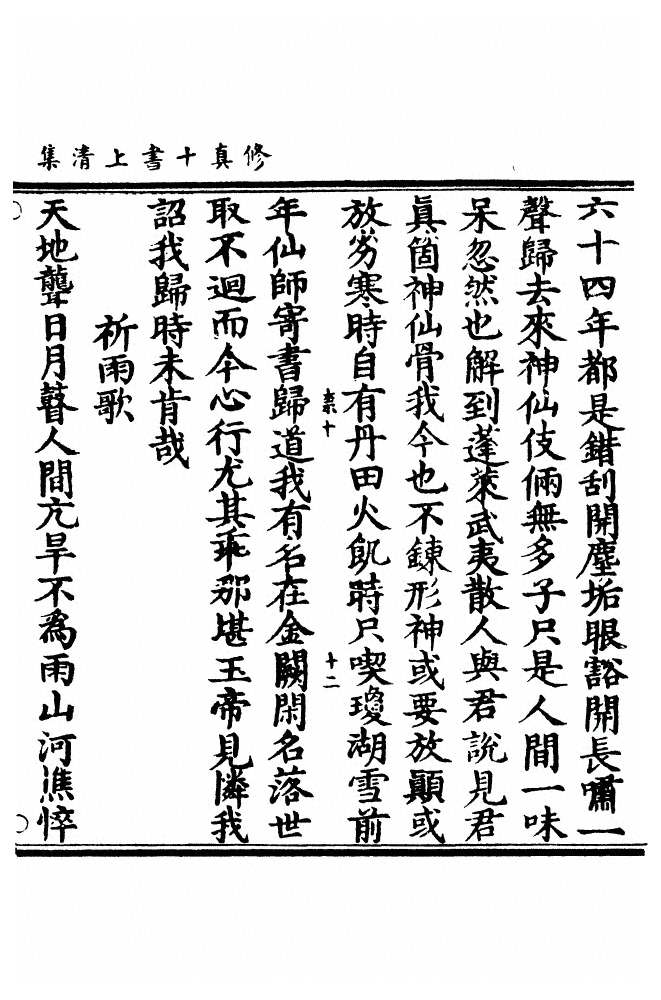 修真十書上清集
六十四年都是錯刮開塵垢眼豁開長嘯一
聲歸去來神仙伎倆無多子只是人間一味
呆忽然也解到蓬萊武夷散人與君說見君
眞箇神仙骨我今也不鍊形神或要放顚或
放劣寒時自有丹田火飢時只喫瓊湖雪前
素十
十二
年仙師寄書歸道我有名在金闕閑名落世
取不迴而今心行尤其乖那堪玉帝見憐我
詔我歸時未肯哉
祈雨歌
天地聾日月瞽人間亢旱不爲雨山河憔悴